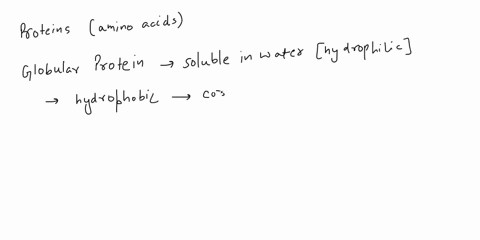 Proteins (amino acids)
Globular Protein → soluble in water [hydrophilic]
→ hydrophobic →